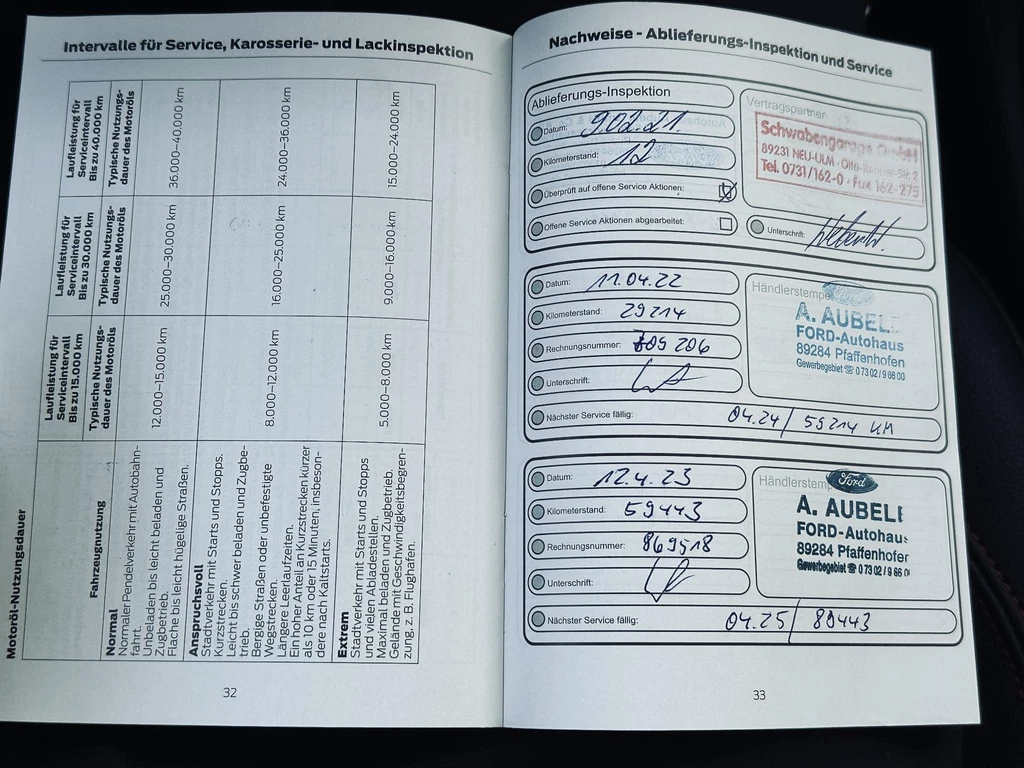 Intervalle für Service, Karosserie- und Lackinspektion
Motoröl-Nutzungsdauer
Fahrzeugnutzung
Laufleistung für
Serviceintervall
Bis zu 15.000 km
Laufleistung für
Serviceintervall
Bis zu 30.000 km
Laufleistung für
Serviceintervall
Bis zu 40.000 km
Typische Nutzungs-
dauer des Motoröls
Typische Nutzungs-
dauer des Motoröls
Typische Nutzungs-
dauer des Motoröls
Normal
Normaler Pendelverkehr mit Autobahn-
fahrt.
Unbeladen bis leicht beladen und
Zugbetrieb.
Flache bis leicht hügelige Straßen.
12.000–15.000 km
25.000–30.000 km
36.000–40.000 km
Anspruchsvoll
Stadtverkehr mit Starts und Stopps.
Kurzstrecken.
Leicht bis schwer beladen und Zugbe-
trieb.
Bergige Straßen oder unbefestigte
Wegstrecken.
Längere Leerlaufzeiten.
Ein hoher Anteil an Kurzstrecken kürzer
als 10 km oder 15 Minuten, insbeson-
dere nach Kaltstarts.
8.000–12.000 km
16.000–25.000 km
24.000–36.000 km
Extrem
Stadtverkehr mit Starts und Stopps
und vielen Abladestellen.
Maximal beladen und Zugbetrieb.
Gelände mit Geschwindigkeitsbegren-
zung, z. B. Flughäfen.
5.000–8.000 km
9.000–16.000 km
15.000–24.000 km
32
Nachweise - Ablieferungs-Inspektion und Service
Ablieferungs-Inspektion
Datum: 9.02.21.
Kilometerstand: 12
Überprüft auf offene Service Aktionen:
Offene Service Aktionen abgearbeitet:
Vertragspartner
Schwabengarage GmbH
89231 NEU-ULM · Otto- -Str. 2
Tel. 0731/162-0 · Fax 162-275
Unterschrift:
Datum: 11.04.22
Kilometerstand: 29214
Rechnungsnummer: 809 206
Unterschrift:
Nächster Service fällig: 04.24/ 59214 KM
Händlerstempel
A. AUBEL
FORD-Autohaus
89284 Pfaffenhofen
Gewerbegebiet ☎ 0 73 02 / 9 66 00
Datum: 12.4.23
Kilometerstand: 59443
Rechnungsnummer: 869518
Unterschrift:
Nächster Service fällig: 04.25/ 89443
Händlerstem
Ford
A. AUBEL
FORD-Autohaus
89284 Pfaffenhofen
Gewerbegebiet ☎ 0 73 02 / 9 66 0
33